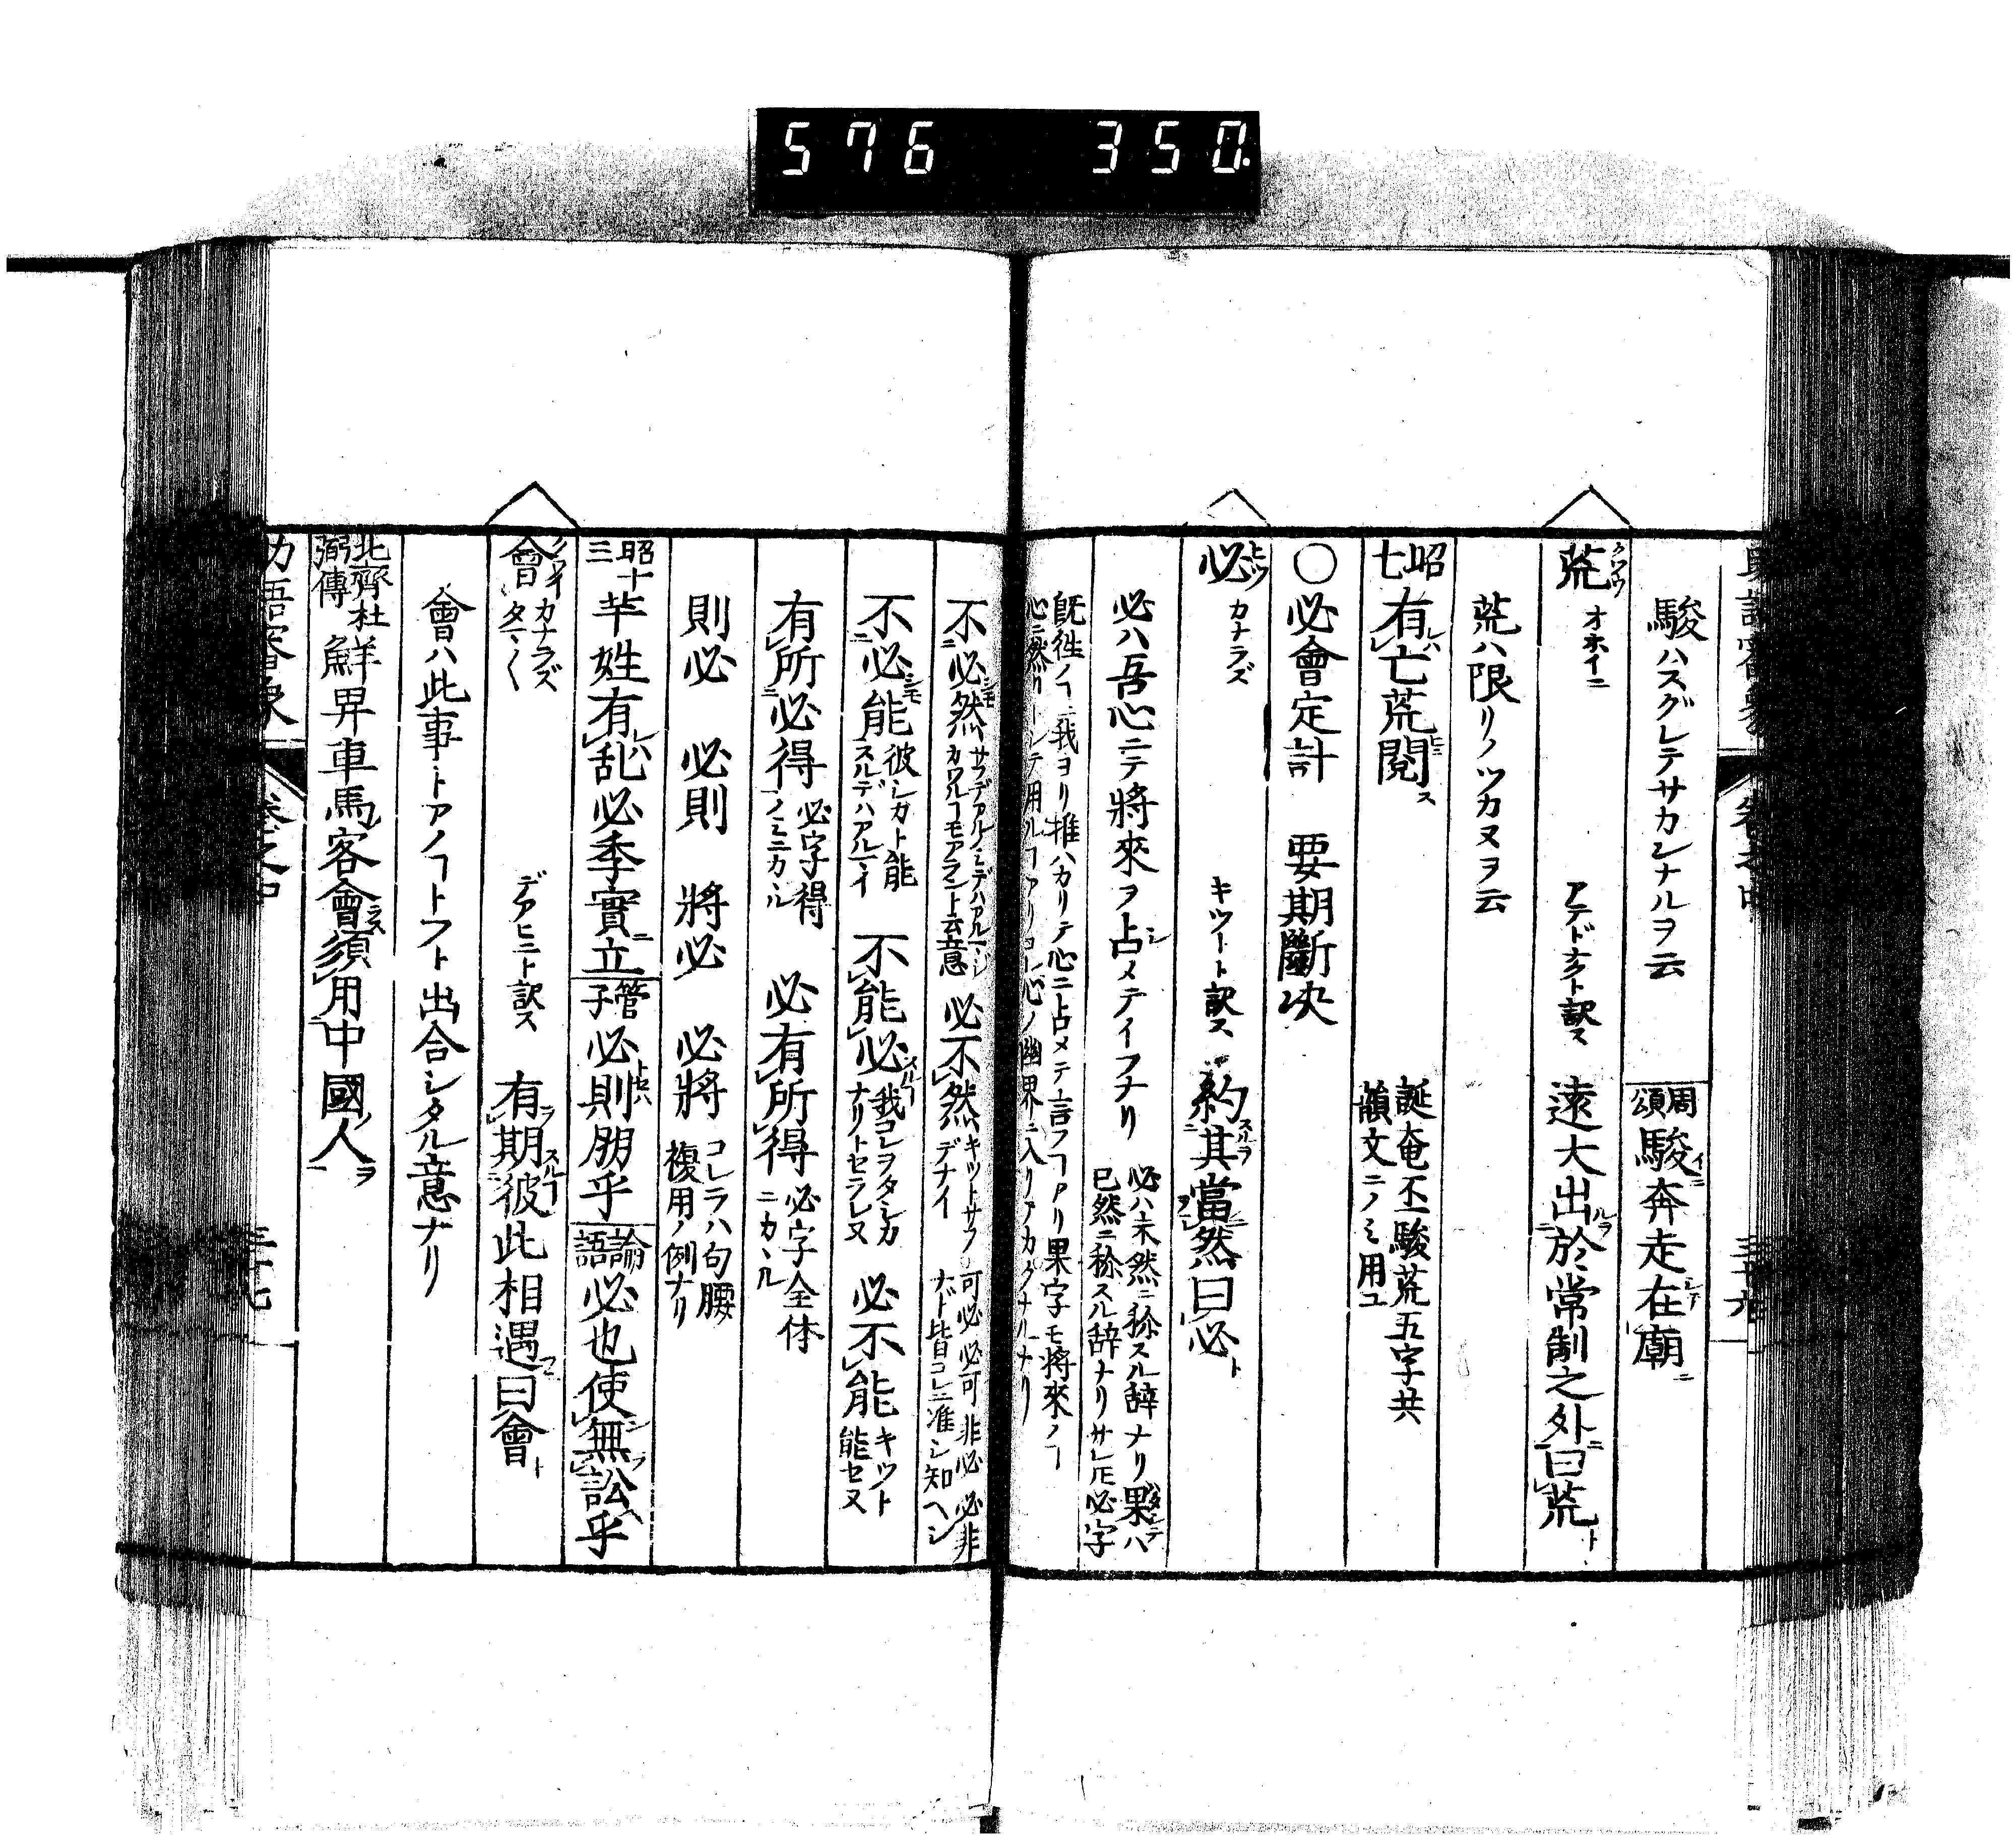 576 350.
駿ハスグレテサカンナルヲ云 周頌 駿奔走在廟
荒 オホイニ 訳ス 遠大出於常制之外曰荒
荒ハ限リノツカヌヲ云
昭七 有亡荒閲 誕奄丕駿荒五字共韻文ニノミ用ユ
○必會定計 要期斷决
必 カナラズ キツート訳ス 約其當然曰必
必ハ吾心ニテ將來ヲ占メテイフナリ 必ハ未然ニ称スル辞ナリ果ハ已然ニ称スル辞ナリサレ𪜈必字
既徃ノヿニ我ヨリ推ハカリテ心ニ占メテ言フヿアリ果字モ将來ノヿ
不必然 必不然 キツトサフデナイ 可必 必可 非必 必非ナド皆コレニ准シ知ヘシ
不必能 彼シカト能スルデハアルマイ 不能必 我コレヲタシカナリトセラレヌ 必不能 キツト能セヌ
有所必得 必字得ノミニカヽル 必有所得 必字全体ニカヽル
則必 必則 將必 必將 コレラハ句腰複用ノ例ナリ
昭十三 芈姓有乱必季實立 管子 必則朋乎 論語 必也使無訟乎
會 カナラズ タマ〱 デアヒニト訳ス 有期彼此相遇曰會
會ハ此事トアノヿトフト出合シタル意ナリ
北齊杜弼傳 鮮卑車馬客會須用中國人